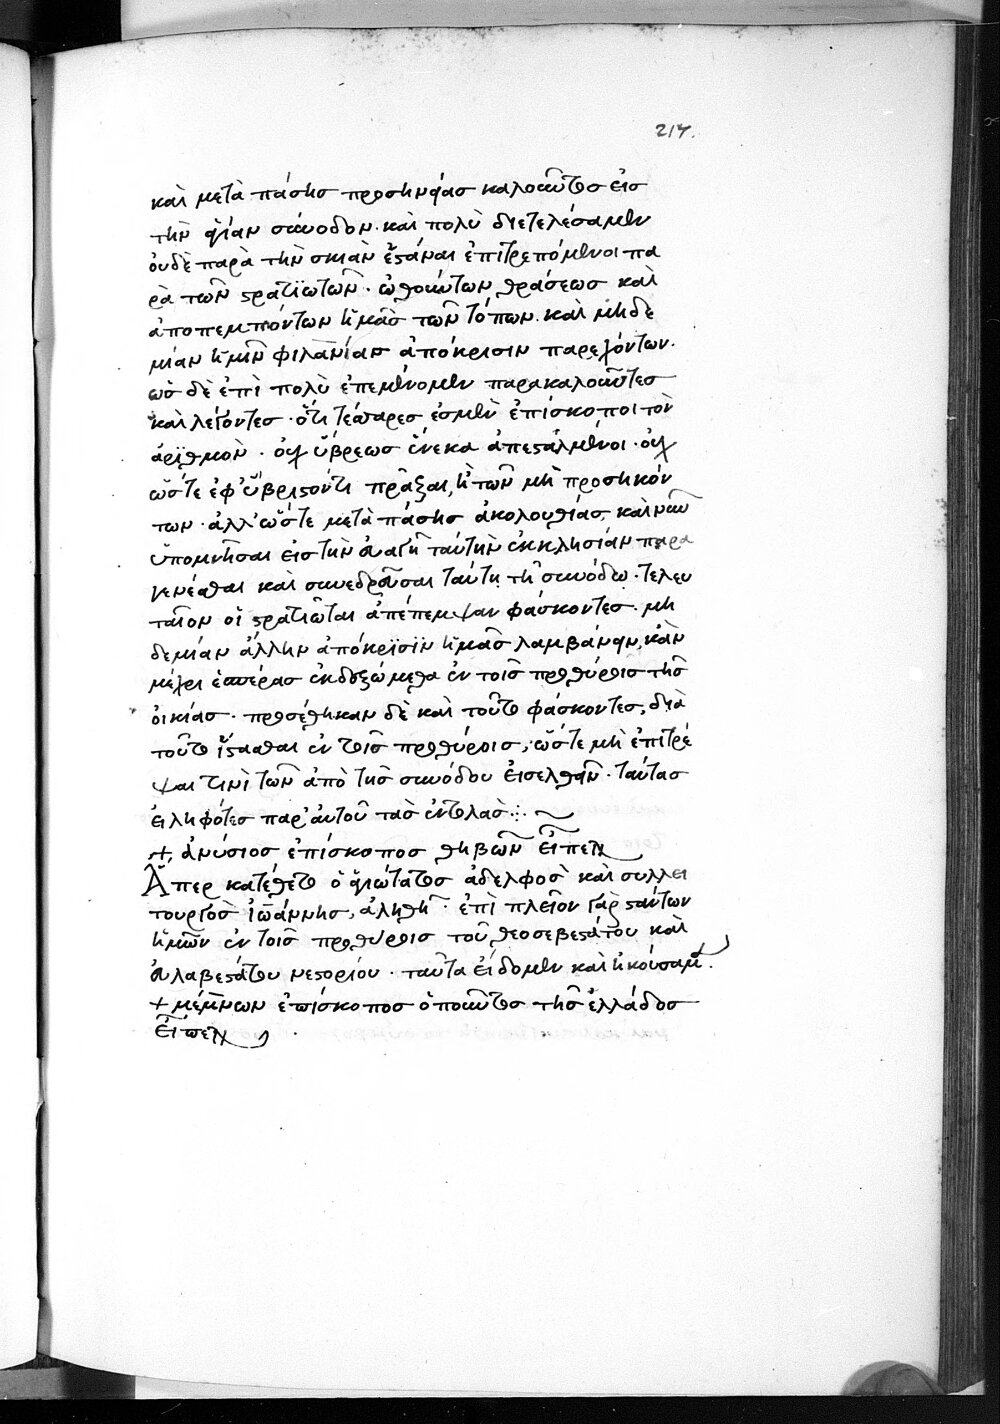 217.
καὶ μετὰ πάσης προσηνείας καλοῦντος εἰς
τὴν ἁγίαν σύνοδον. καὶ πολὺ διετελέσαμεν
οὐδὲ παρὰ τὴν σκιὰν ἑστάναι ἐπιτρεπόμενοι πα
ρὰ τῶν στρατιωτῶν. ὠθούντων θράσεως καὶ
ἀποπεμπόντων ἡμᾶς τῶν τόπων. καὶ μηδε
μίαν ἡμῖν φιλανίαν ἀπόκρισιν παρεχόντων.
ὡς δὲ ἐπὶ πολὺ ἐπεμένομεν παρακαλοῦντες
καὶ λέγοντες. ὅτι τέσσαρες ἐσμὲν ἐπίσκοποι τὸν
ἀριθμὸν. οὐχ ὕβρεως ἕνεκα ἀπεσταλμένοι. οὐχ
ὥστε ἐφ' ὕβρει ὅντι πρᾶξαι, ἢ τῶν μὴ προσηκόν
των. ἀλλ' ὥστε μετὰ πάσης ἀκολουθίας, καὶ νῦν
ὑπομνῆσαι εἰς τὴν εὐαγῆ ταύτην ἐκκλησίαν παρα
γενέσθαι καὶ συνεδρεῦσαι ταύτη τῇ συνόδω. τελευ
ταῖον οἱ στρατιῶται ἀπέπεμψαν φάσκοντες. μη
δεμίαν ἄλλην ἀπόκρϊσϊν ἡμᾶς λαμβάνειν, κἂν
μέχρι ἑσπέρας ἐκδεξώμεθα ἐν τοῖς προθύροις τῆς
οἰκίας. προσέθηκαν δὲ καὶ τοῦτο φάσκοντες, διὰ
τοῦτο ἵστασθαι ἐν τοῖς προθύροις, ὥστε μὴ ἐπιτρέ
ψαι τινὶ τῶν ἀπὸ τῆς συνόδου εἰσελθεῖν. ταύτας
εἰληφότες παρ' αὐτοῦ τὰς ἐντολὰς :. ~
+ ἀνύσιος ἐπίσκοπος θηβῶν εἶπεν
Ἅπερ κατέθετο ὁ ἁγιώτατος ἀδελφὸς καὶ συλλει
τουργὸς ἰωάννης, ἀληθῆ. ἐπὶ πλεῖον γὰρ στάντων
ἡμῶν ἐν τοῖς προθύροις τοῦ θεοσεβεστάτου καὶ
εὐλαβεστάτου νεστορίου. ταῦτα εἴδομεν καὶ ἠκούσαμεν.
+ μέμνων ἐπίσκοπος ὁποῦντος τῆς ἑλλάδος
εἶπεν